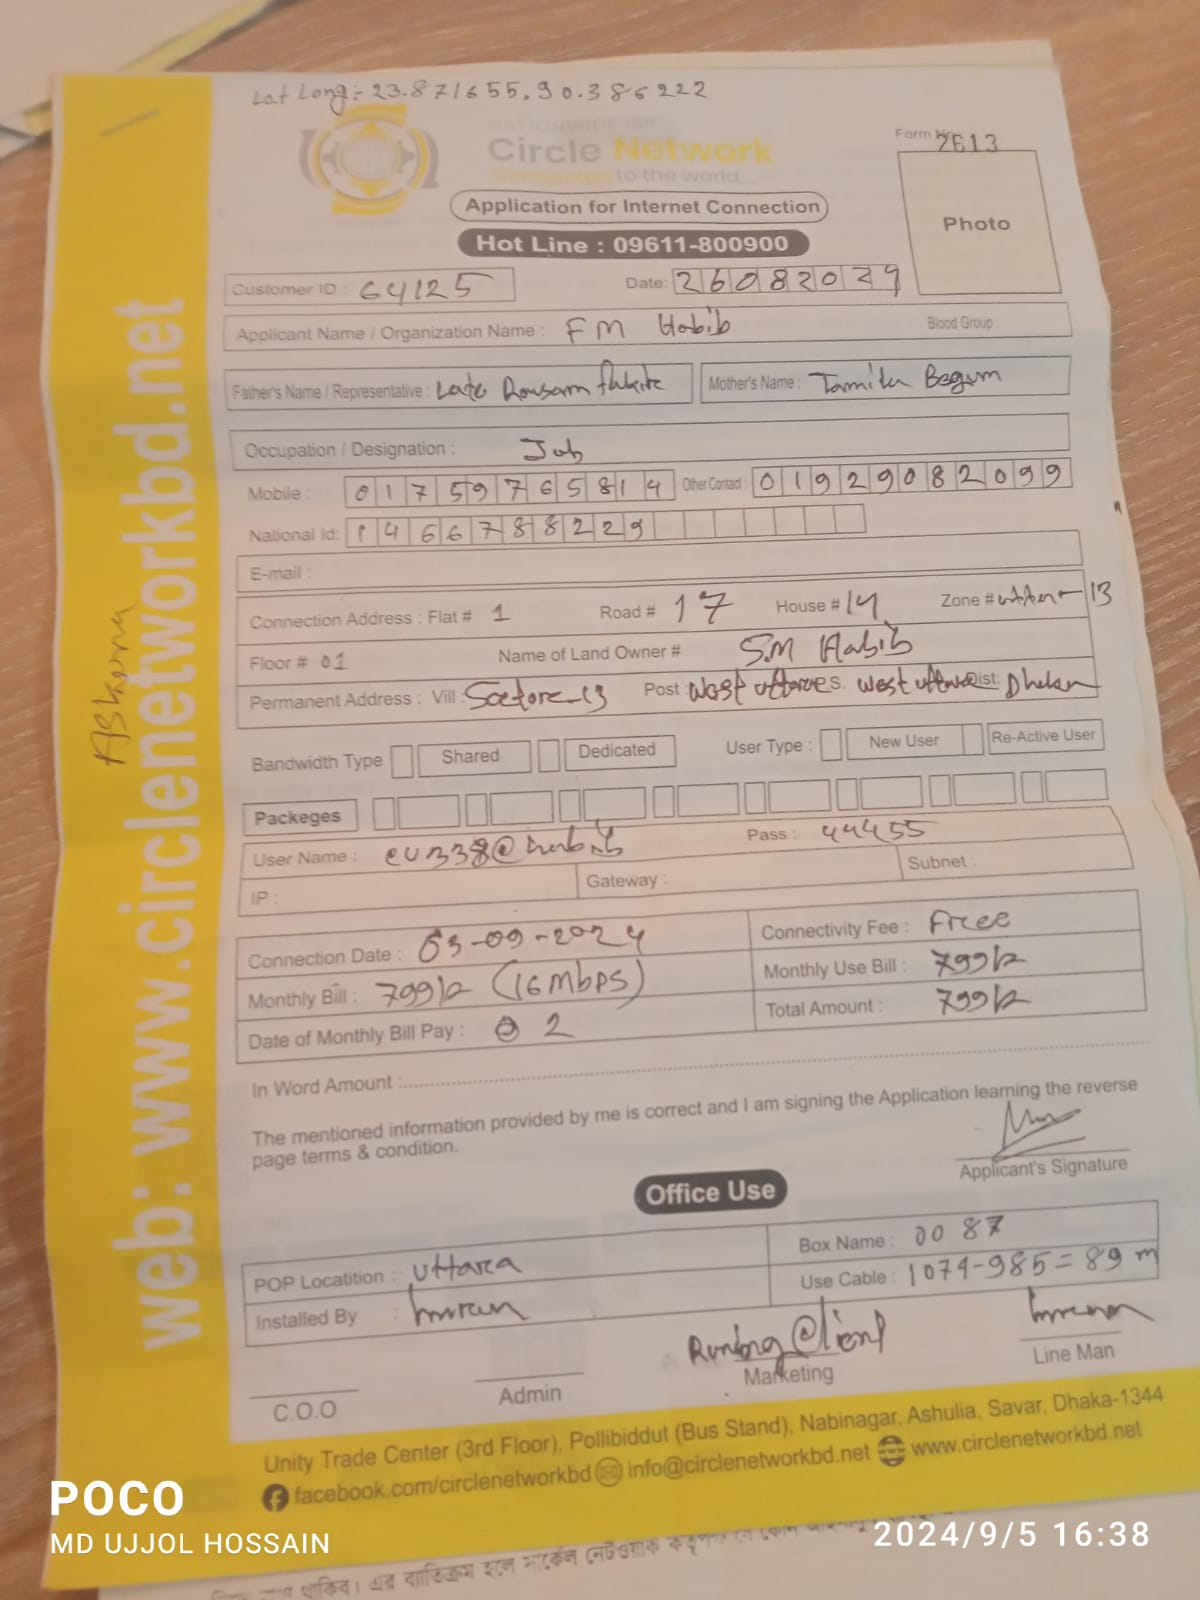 Lat Long:- 23.871655.90.386222
NATIONWIDE ISP
Circle Network
Connected to the world...
Form No 2613
Application for Internet Connection
Photo
Hot Line : 09611-800900
Customer ID : 64125 Date: 26082024
Applicant Name / Organization Name : FM Habib Blood Group
Father's Name / Representative : Late Mother's Name : Begum
Occupation / Designation : Job
Mobile : 01759765814 Other Contact : 01929082099
National Id: 1466788229
E-mail :
Connection Address : Flat # 1 Road # 17 House # 14 Zone # 13
Floor # 01 Name of Land Owner # S.M Habib
Permanent Address : Vill : Sectore-13 Post : West P.S. West Dist: Dhaka
Bandwidth Type Shared Dedicated User Type : New User Re-Active User
Packeges
User Name : Pass : 44455
IP : Gateway : Subnet :
Connection Date : 03-09-2024 Connectivity Fee : Free
Monthly Bill : 799/= (16Mbps) Monthly Use Bill : 799/=
Date of Monthly Bill Pay : 2 Total Amount : 799/=
In Word Amount :
The mentioned information provided by me is correct and I am signing the Application learning the reverse
page terms & condition.
Applicant's Signature
Office Use
POP Locatition : Uttara Box Name : 0087
Installed By : Imran Use Cable : 1074-985=89 m
Runing Client Imran
C.O.O Admin Marketing Line Man
Unity Trade Center (3rd Floor), Pollibiddut (Bus Stand), Nabinagar, Ashulia, Savar, Dhaka-1344
facebook.com/circlenetworkbd info@circlenetworkbd.net www.circlenetworkbd.net
web: www.circlenetworkbd.net
POCO
MD UJJOL HOSSAIN
2024/9/5 16:38
থাকিব। এর ব্যতিক্রম হলে সার্কেল নেটওয়ার্ক